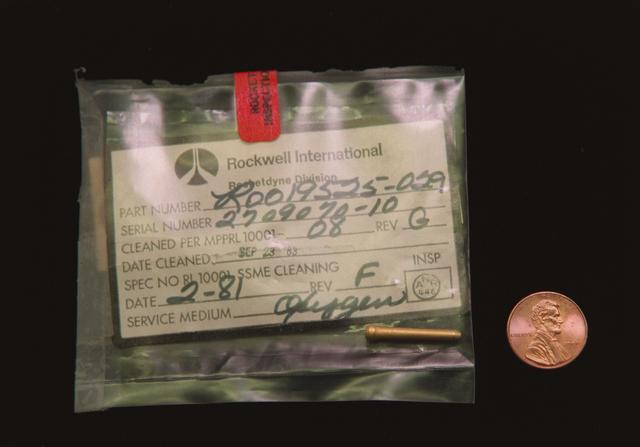 ROCKET
INSPECTIO
Rockwell International
Rocketdyne Division
PART NUMBER R0019525-029
SERIAL NUMBER 2709070-10
CLEANED PER MPPRL 10001- 08 REV G
DATE CLEANED SEP 23 83
SPEC NO RL 10001 SSME CLEANING INSP
DATE 2-81 REV F
SERVICE MEDIUM Oxygen